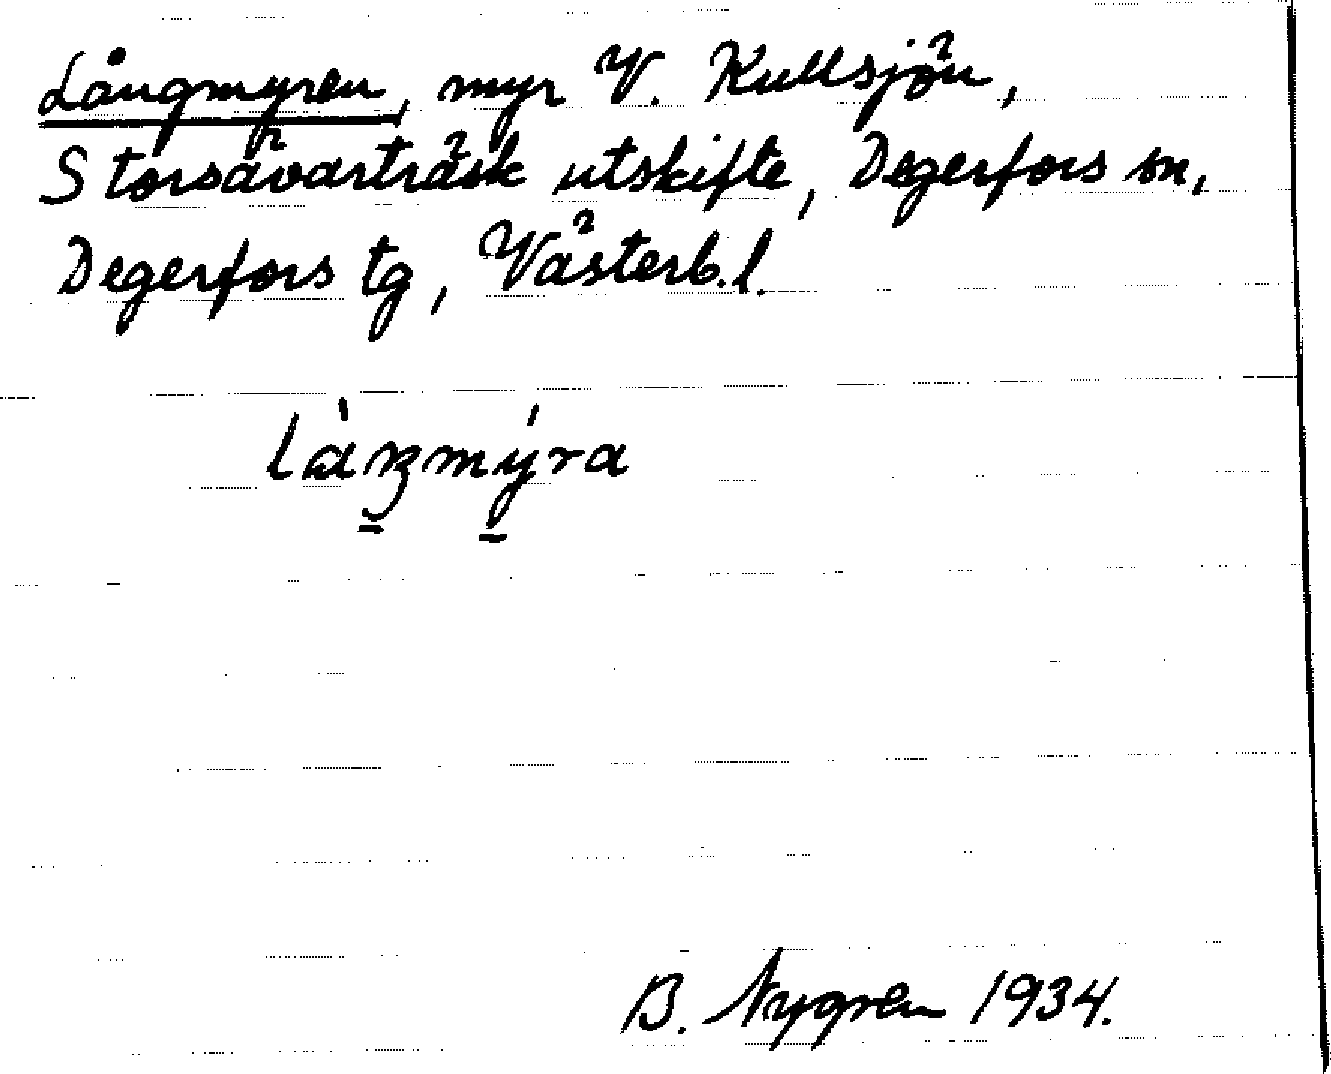 Långmyren, myr V. Kullsjön,
Storsävarträsk utskifte, Degerfors sn,
Degerfors tg, Västerb. l.
B. Nygren 1934.